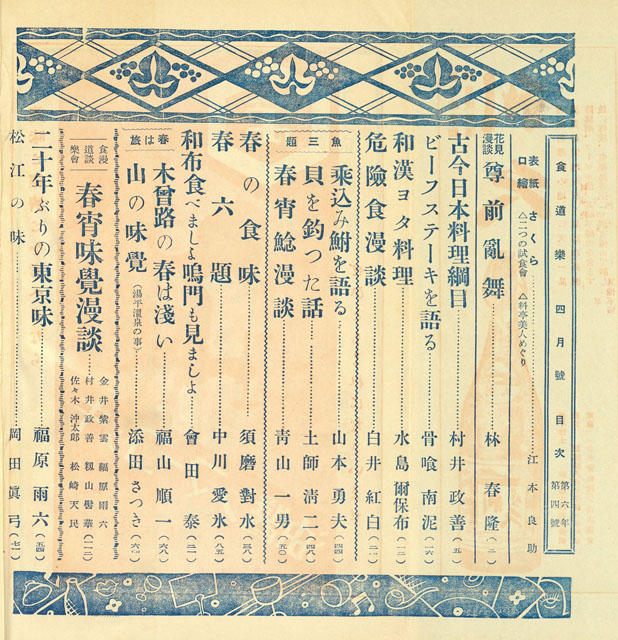 食道樂 四月號 目次 第六年 第四號
表紙 さくら 江本良助
口繪 △二つの試食會 △料亭美人めぐり
花見漫談 尊前亂舞 林春隆(二)
古今日本料理綱目 村井政善(五)
ビーフステーキを語る 骨喰南泥(一六)
和漢ヨタ料理 水島爾保布(一二)
危險食漫談 白井紅白(二一)
魚三題
乘込み鮒を語る 山本勇夫(四四)
貝を釣つた話 土師淸二(四八)
春宵鯰漫談 靑山一男(五〇)
春の食味 須磨對水(三八)
春六題 中川愛氷(八五)
和布食べましよ鳴門も見ましよ 會田泰(二一)
春は旅
木曾路の春は淺い 福山順一(六八)
山の味覺(湯平溫泉の事) 添田さつき(六六)
食道樂漫談會 春宵味覺漫談 金井紫雲 福原雨六 村井政善 籾山髭華 佐々木沖太郎 松崎天民(二二)
二十年ぶりの東京味 福原雨六(五四)
松江の味 岡田眞弓(七一)